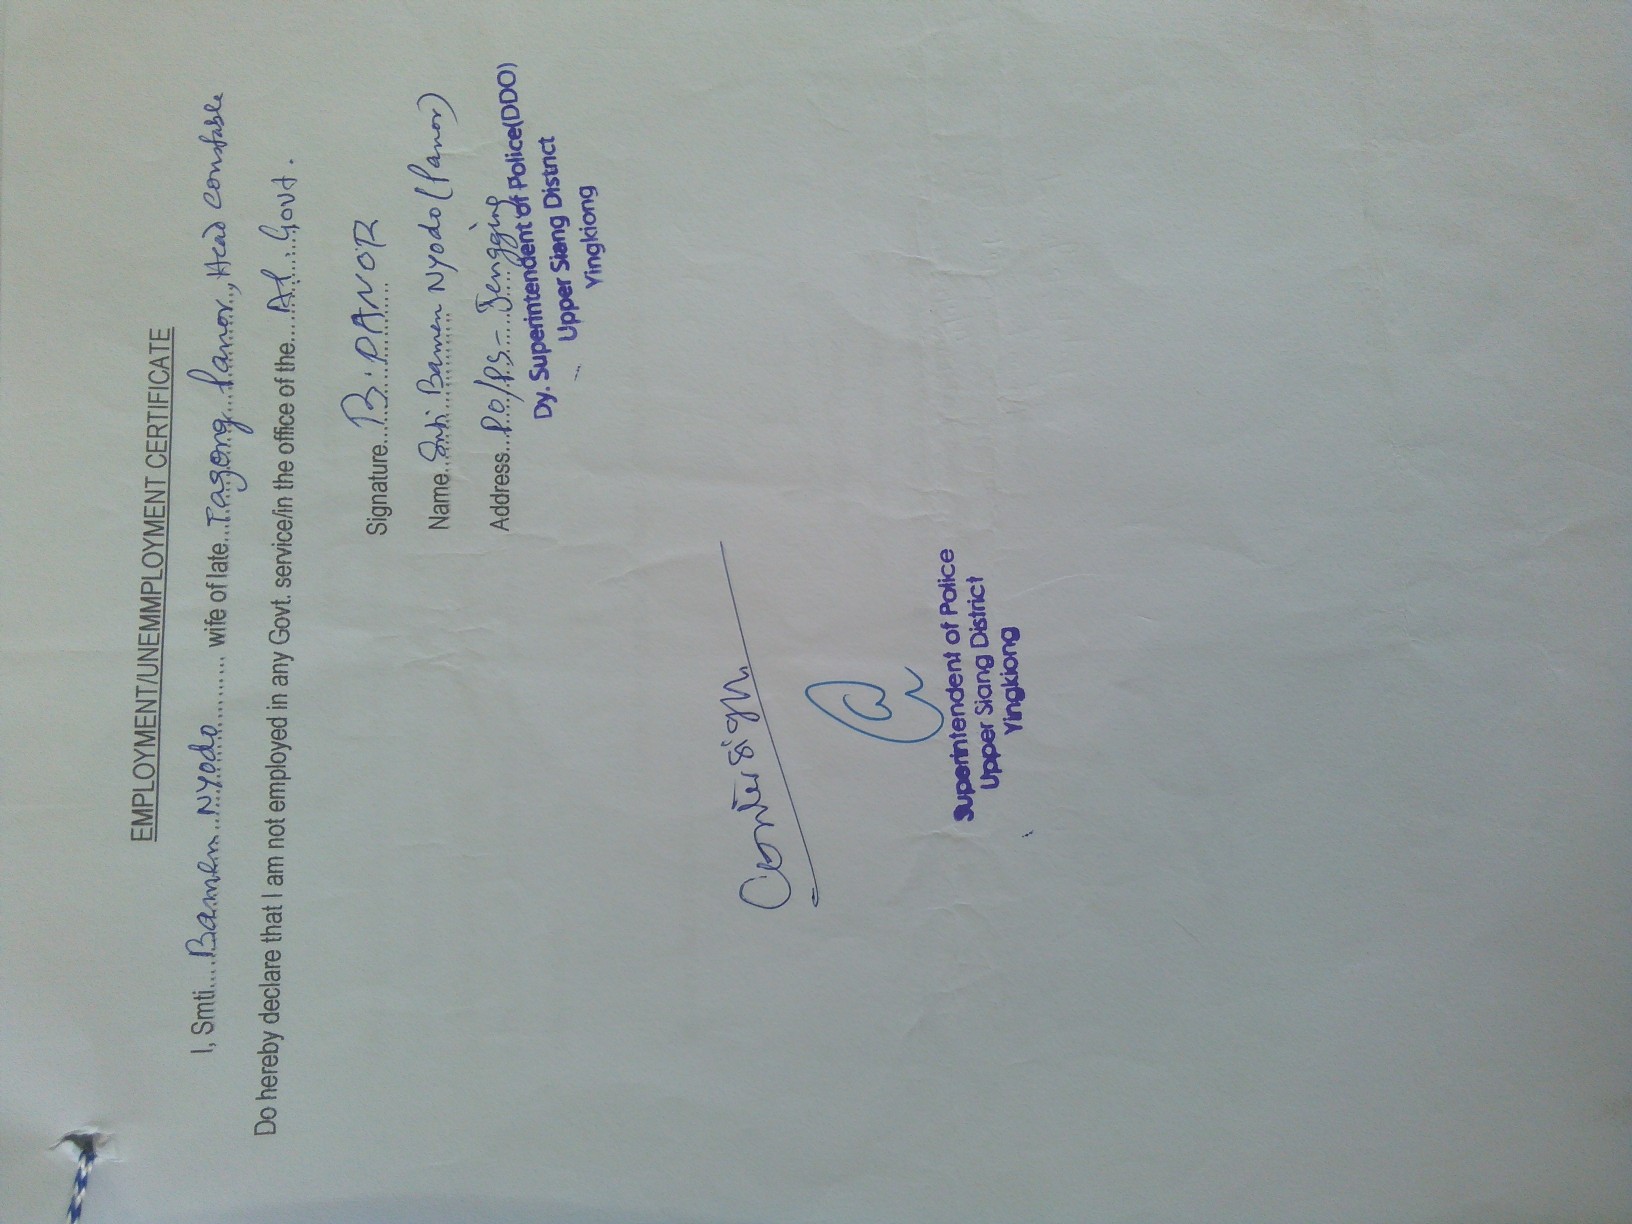 EMPLOYMENT/UNEMMPLOYMENT CERTIFICATE
I, Smti....Bamen Nyodo.......... wife of late...Tagong Panor..., Head Constable
Do hereby declare that I am not employed in any Govt. service/in the office of the....AP....Govt.
Signature...B. PANOR
Name..Smti Bamen Nyodo (Panor)
Address...P.O/P.S-...Jengging
Dy. Superintendent of Police(DDO)
Upper Siang District
Yingkiong
Contersign
Superintendent of Police
Upper Siang District
Yingkiong